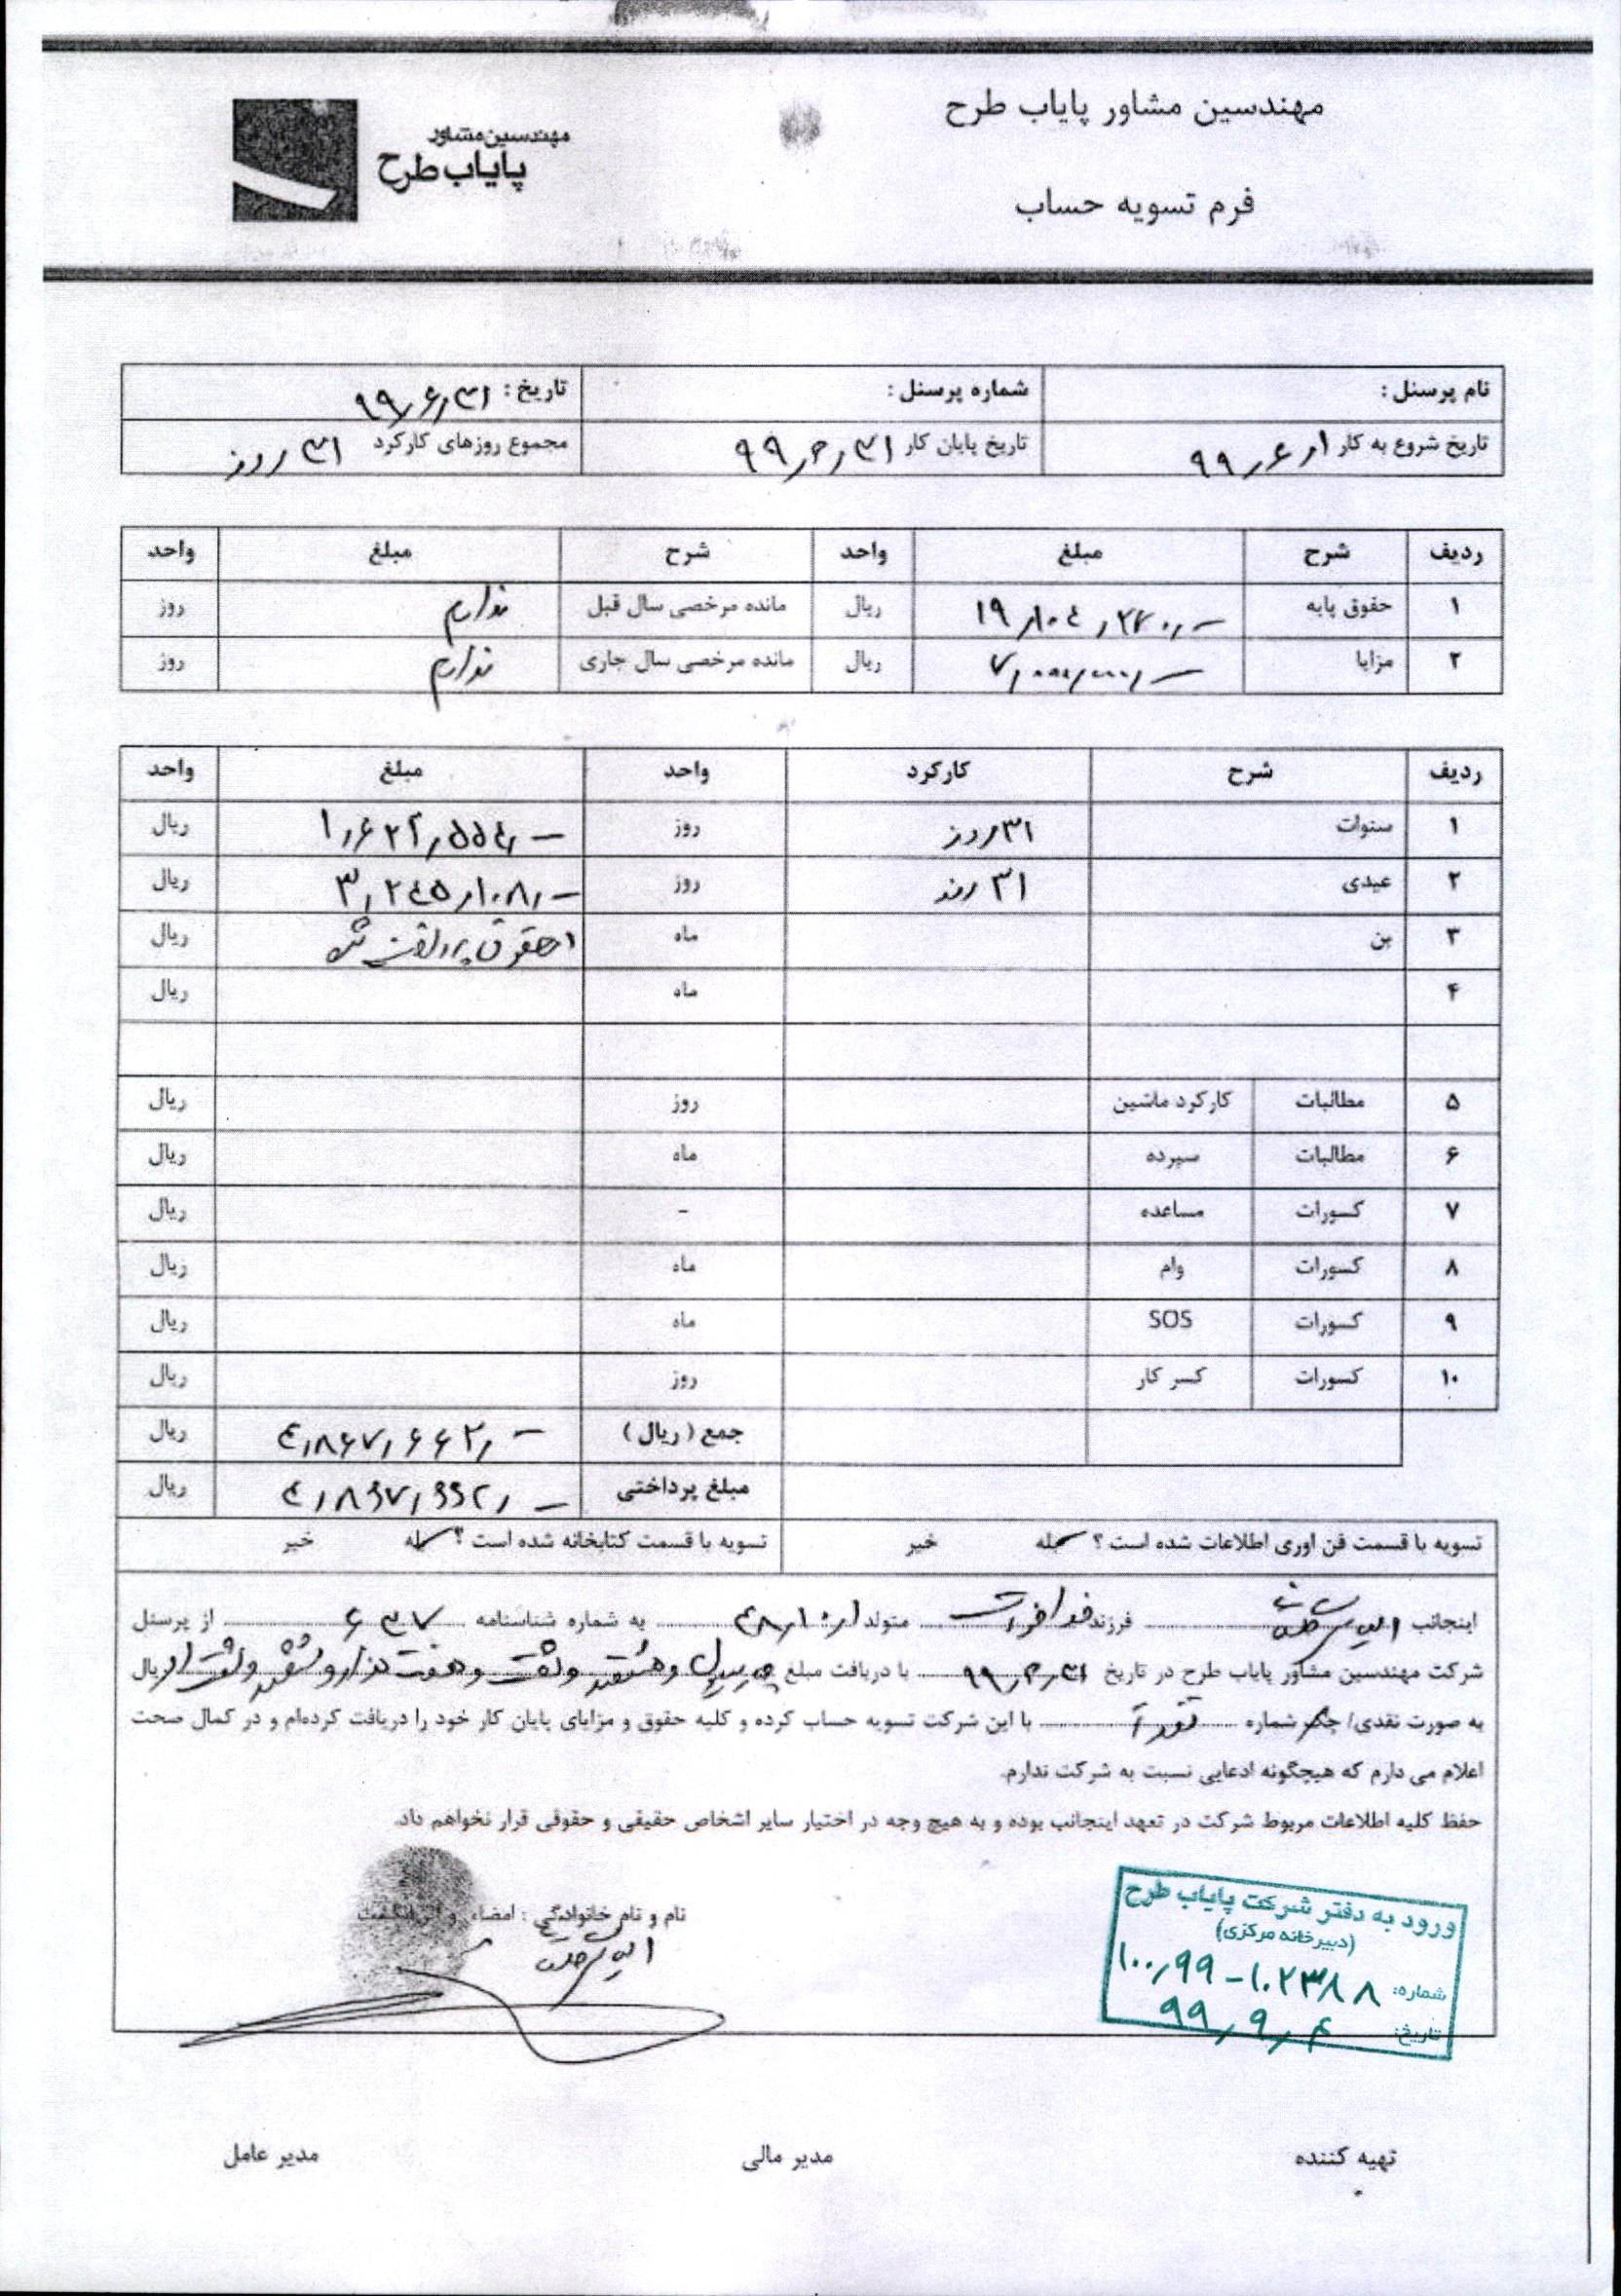 مهندسین مشاور پایاب طرح
مهندسین مشاور
پایاب طرح
فرم تسویه حساب
نام پرسنل : شماره پرسنل : تاریخ : ۹۹٫۶٫۳۱
تاریخ شروع به کار ۹۹٫۶٫۱ تاریخ پایان کار ۹۹٫۶٫۳۱ مجموع روزهای کارکرد ۳۱ روز
ردیف شرح مبلغ واحد شرح مبلغ واحد
۱ حقوق پایه ۱۹٫۱۰۴٫۲۷۰٫- ریال مانده مرخصی سال قبل ندارم روز
۲ مزایا ریال مانده مرخصی سال جاری ندارم روز
ردیف شرح کارکرد واحد مبلغ واحد
۱ سنوات ۳۱ روز روز ۱٫۶۲۲٫۵۵۴٫- ریال
۲ عیدی ۳۱ روز روز ۳٫۲۴۵٫۱۰۸٫- ریال
۳ بن ماه ریال
۴ ماه ریال
۵ مطالبات کارکرد ماشین روز ریال
۶ مطالبات سپرده ماه ریال
۷ کسورات مساعده - ریال
۸ کسورات وام ماه ریال
۹ کسورات SOS ماه ریال
۱۰ کسورات کسر کار روز ریال
جمع ( ریال ) ۴٫۸۶۷٫۶۶۲٫- ریال
مبلغ پرداختی ۴٫۸۶۷٫۶۶۲٫- ریال
تسویه با قسمت فن اوری اطلاعات شده است ؟ بله خیر تسویه با قسمت کتابخانه شده است ؟ بله خیر
اینجانب فرزند متولد به شماره شناسنامه ۶۳۷ از پرسنل
شرکت مهندسین مشاور پایاب طرح در تاریخ ۹۹٫۶٫۳۱ با دریافت مبلغ چهار میلیون و هشتصد و شصت و هفت هزار و ششصد و شصت و دو ریال
به صورت نقدی/ چک شماره نقداً با این شرکت تسویه حساب کرده و کلیه حقوق و مزایای پایان کار خود را دریافت کرده‌ام و در کمال صحت
اعلام می دارم که هیچگونه ادعایی نسبت به شرکت ندارم.
حفظ کلیه اطلاعات مربوط شرکت در تعهد اینجانب بوده و به هیچ وجه در اختیار سایر اشخاص حقیقی و حقوقی قرار نخواهم داد.
نام و نام خانوادگی : امضاء و اثر انگشت
ورود به دفتر شرکت پایاب طرح
(دبیرخانه مرکزی)
شماره: ۱۰۰٫۹۹-۱۰۲۳۸۸
تاریخ: ۹۹٫۹٫۴
تهیه کننده مدیر مالی مدیر عامل